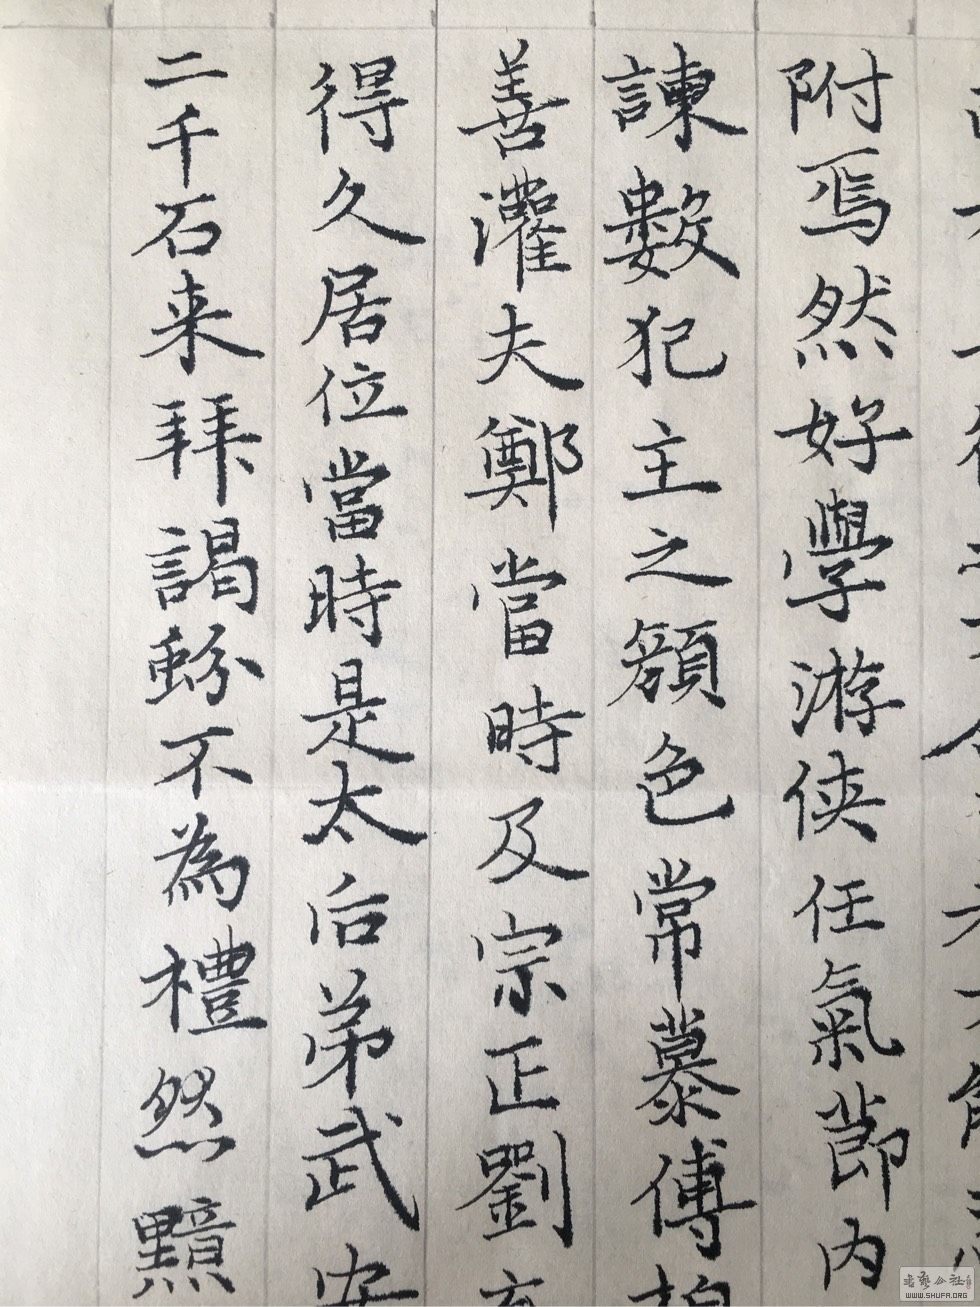 附焉然好學游俠任氣節内
諫數犯主之顏色常慕傅柏
善灌夫鄭當時及宗正劉
得久居位當時是太后弟武安
二千石来拜謁蚡不為禮然黯
書藝公社
WWW.SHUFA.ORG